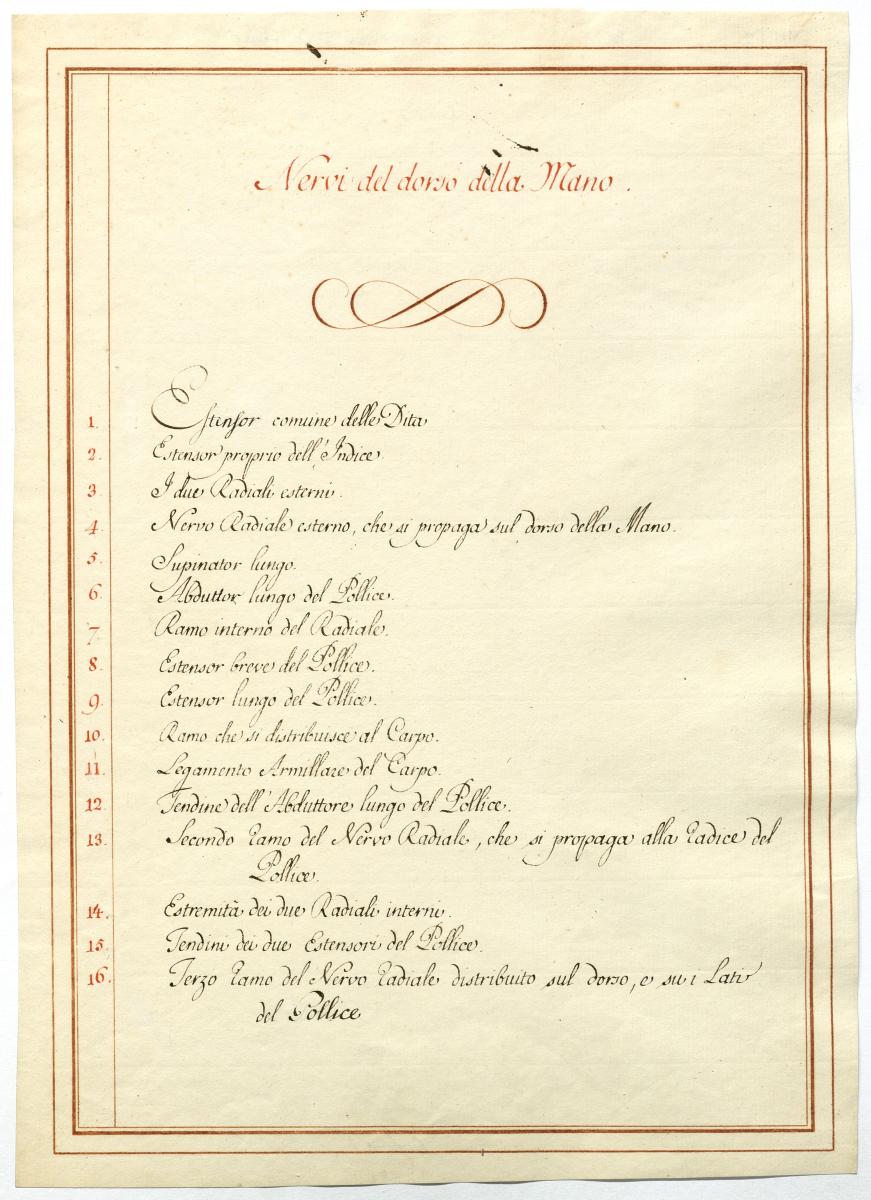 Nervi del dorso della Mano.
1. Estensor comune delle Dita
2. Estensor proprio dell'Indice.
3 I due Radiali esterni.
4. Nervo Radiale esterno, che si propaga sul dorso della Mano.
5. Supinator lungo.
6. Abduttor lungo del Pollice.
7. Ramo interno del Radiale.
8. Estensor breve del Pollice.
9. Estensor lungo del Pollice.
10. Ramo che si distribuisce al Carpo.
11. Legamento Armillare del Carpo.
12. Tendine dell'Abduttore lungo del Pollice.
13. Secondo ramo del Nervo Radiale, che si propaga alla radice del
Pollice.
14. Estremità dei due Radiali interni.
15. Tendini dei due Estensori del Pollice.
16. Terzo ramo del Nervo radiale distribuito sul dorso, e su i Lati
del Pollice